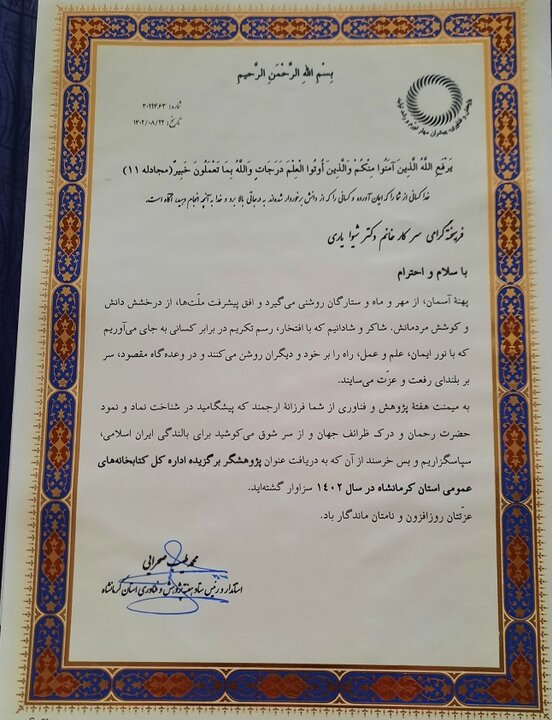 بِسْمِ اللهِ الرَّحْمَنِ الرَّحِیم
شماره: ۳۰۹۹۴۶۳
تاریخ: ۱۴۰۲/۰۸/۲۲
یَرْفَعِ اللَّهُ الَّذِینَ آمَنُوا مِنْکُمْ وَالَّذِینَ أُوتُوا الْعِلْمَ دَرَجَاتٍ وَاللَّهُ بِمَا تَعْمَلُونَ خَبِیرٌ (مجادله ۱۱)
خدا کسانی از شما را که ایمان آورده و کسانی را که از دانش برخوردار شده‌اند به درجاتی بالا برد و خدا به آنچه انجام دهید، آگاه است.
فرهیختهٔ گرامی سرکار خانم دکتر شیوا یاری
با سلام و احترام
پهنهٔ آسمان، از مهر و ماه و ستارگان روشنی می‌گیرد و افق پیشرفت ملّت‌ها، از درخشش دانش
و کوشش مردمانش. شاکر و شادانیم که با افتخار، رسم تکریم در برابر کسانی به جای می‌آوریم
که با نور ایمان، علم و عمل، راه را بر خود و دیگران روشن می‌کنند و در وعده‌گاه مقصود، سر
بر بلندای رفعت و عزّت می‌سایند.
به میمنت هفتهٔ پژوهش و فناوری از شما فرزانهٔ ارجمند که پیشگامید در شناخت نماد و نمود
حضرت رحمان و درک ظرائف جهان و از سر شوق می‌کوشید برای بالندگی ایران اسلامی،
سپاسگزاریم و بس خرسند از آن که به دریافت عنوان پژوهشگر برگزیده اداره کل کتابخانه‌های
عمومی استان کرمانشاه در سال ۱۴۰۲ سزاوار گشته‌اید.
عزّتتان روزافزون و نامتان ماندگار باد.
محمد طیب صحرایی
استاندار و رئیس ستاد هفته پژوهش و فناوری استان کرمانشاه